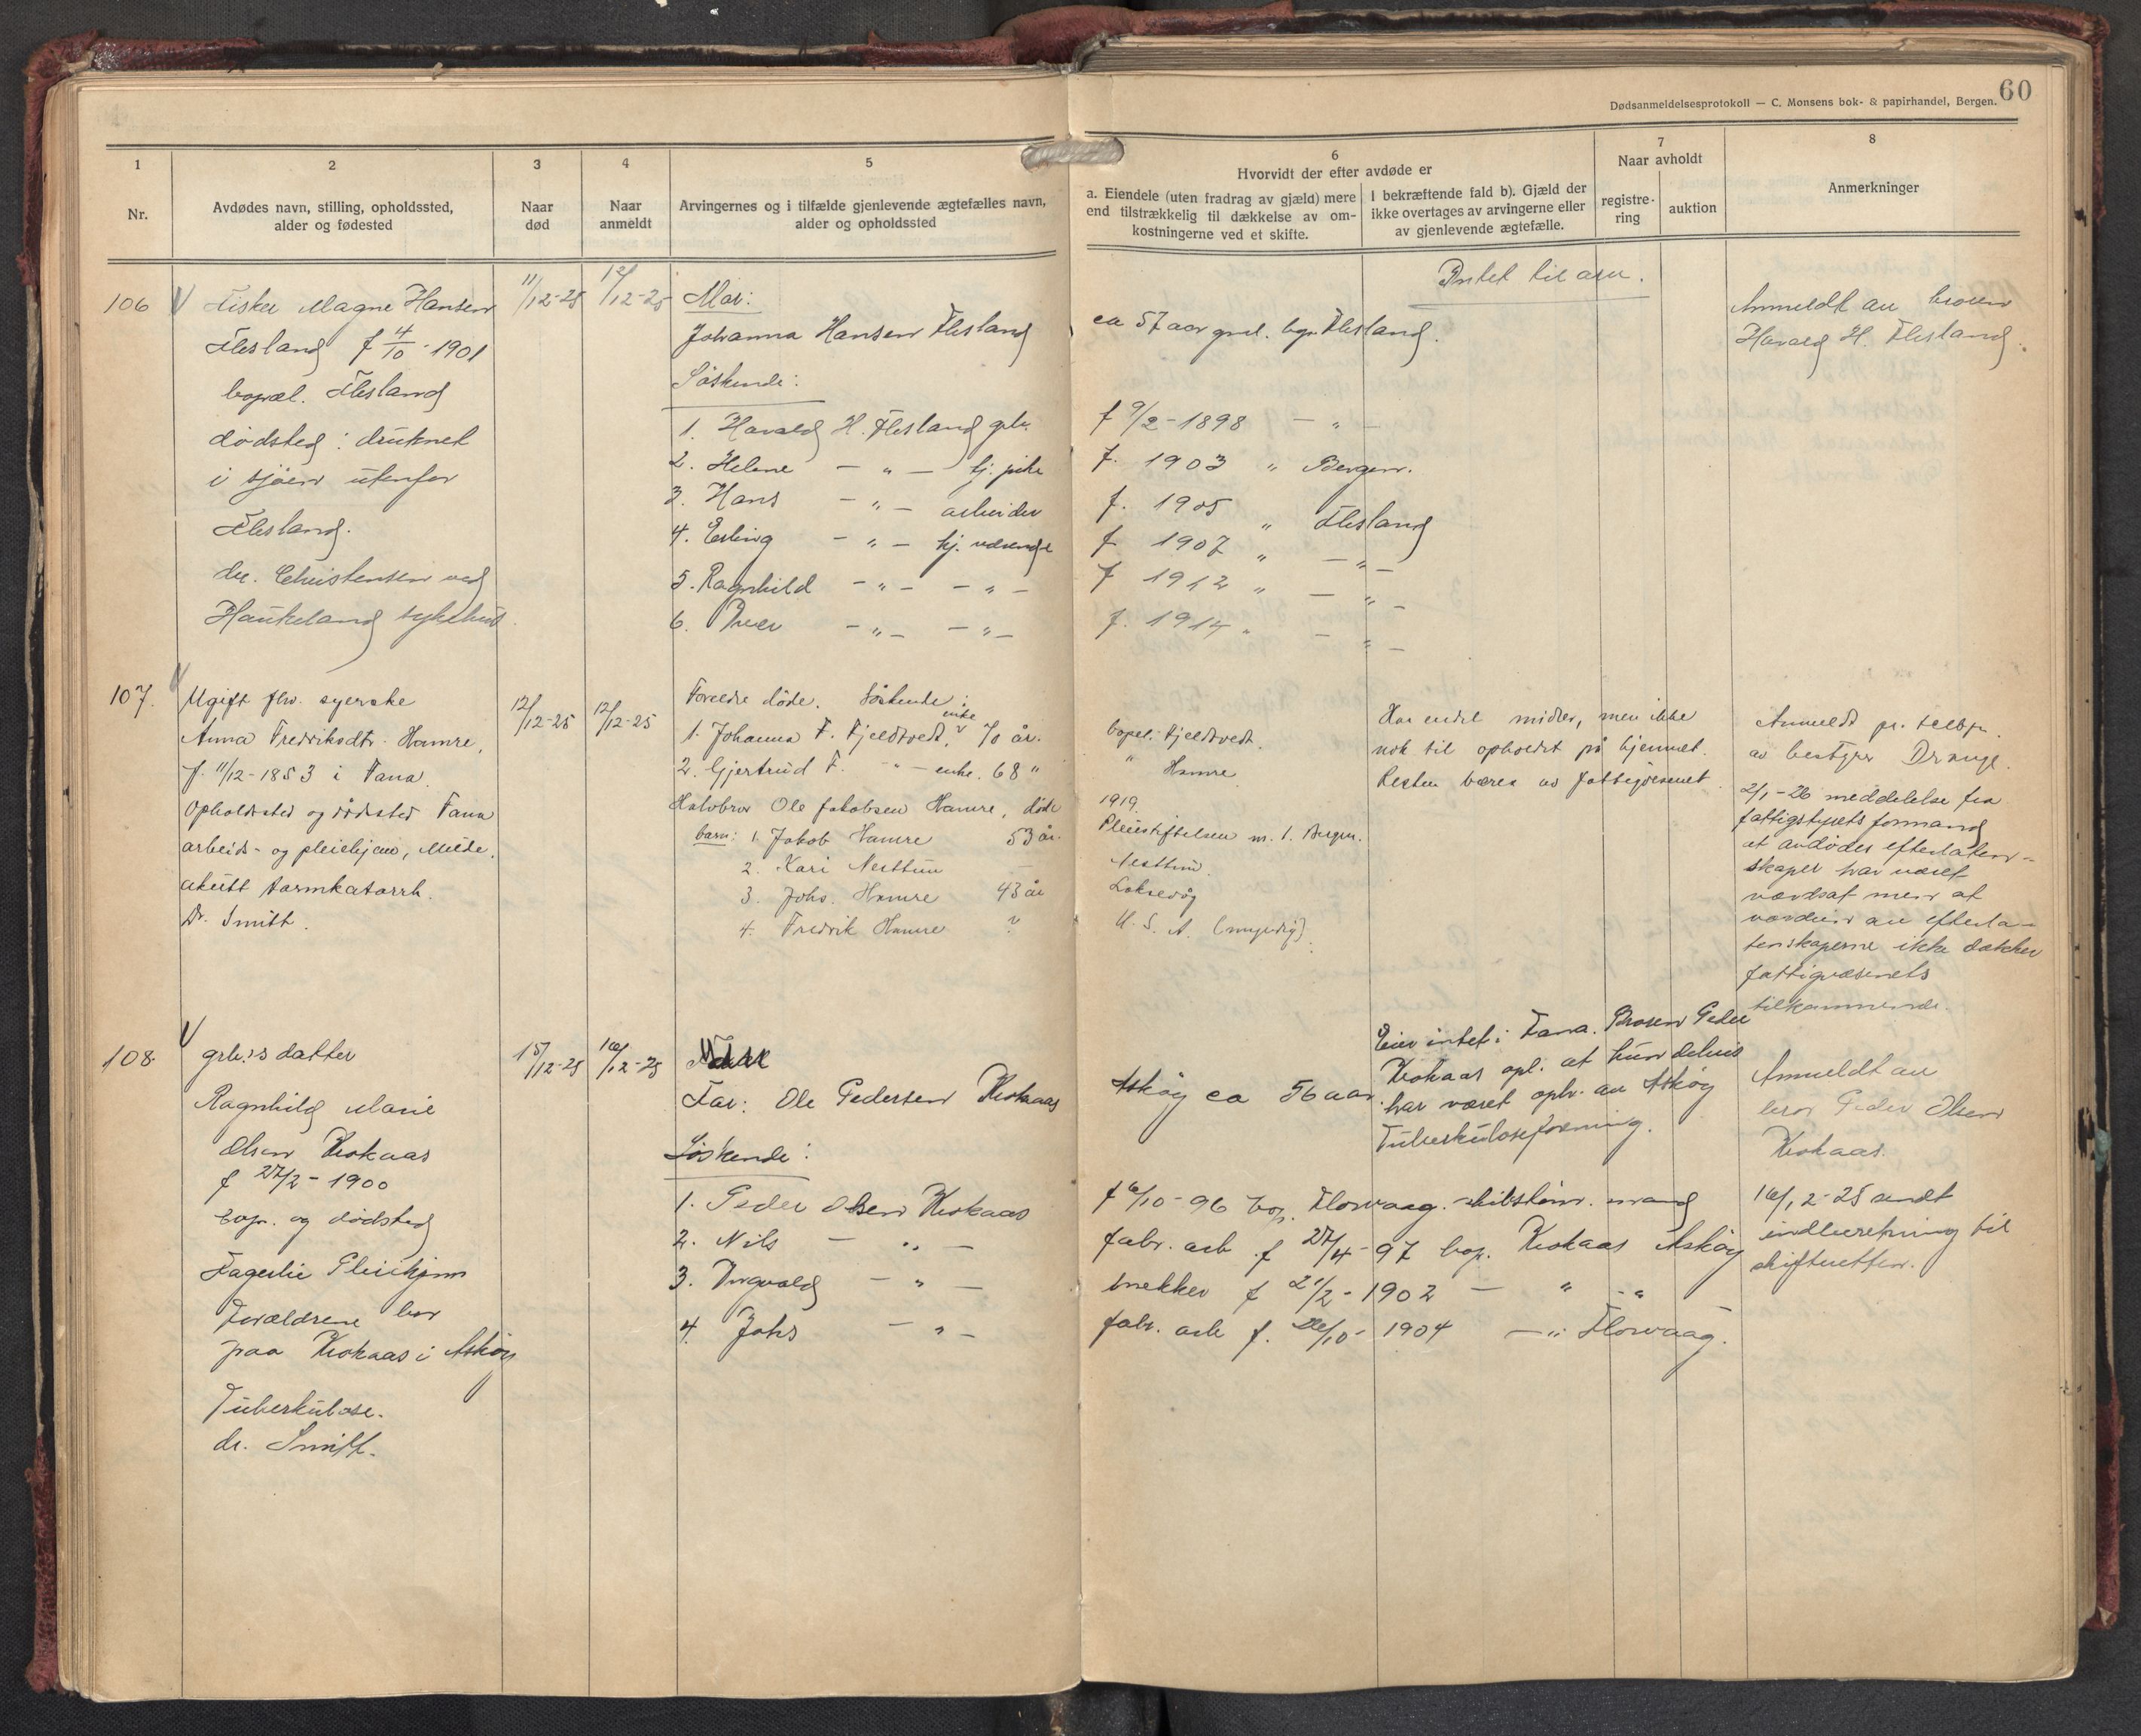 60
Dødsanmeldelsesprotokoll — C. Monsens bok- & papirhandel, Bergen.
1
2
3
4
5
6
7
8
Nr.
Avdødes navn, stilling, opholdssted,
alder og fødested
Naar
død
Naar
anmeldt
Arvingernes og i tilfælde gjenlevende ægtefælles navn,
alder og opholdssted
Hvorvidt der efter avdøde er
a. Eiendele (uten fradrag av gjæld) mere
end tilstrækkelig til dækkelse av om-
kostningerne ved et skifte.
I bekræftende fald b). Gjæld der
ikke overtages av arvingerne eller
av gjenlevende ægtefælle.
Naar avholdt
registre-
ring
auktion
Anmerkninger
106
Fisker Magne Hansen
Flesland f 4/10-1901
bopæl. Flesland
dödsted: druknet
i sjöen utenfor
Flesland.
dr. Christensen ved
Haukeland sykehus.
11/12-25
12/12-25
Mor:
Johanna Hansen Flesland
Söskende:
1. Harald H. Flesland grb.
2. Helene — " — tj. pike
3. Hans — " — arbeider
4. Erling — " — hj. værende
5. Ragnhild — " — — " —
6. — " — — " —
ca 57 aar gml. bop. Flesland.
f 9/2-1898 — " —
f. 1903 " Bergen.
f. 1905 " Flesland
f 1907 " — " —
f 1912 " — " —
f. 1914 " — " —
Intet til arv.
Anmeldt av broren
Harald H. Flesland.
107.
Ugift fhv. syerske
Anna Fredriksdtr. Hamre,
f. 11/12-1853 i Fana.
Opholdssted og dödssted Fana
arbeids- og pleiehjem, Milde.
akutt tarmkatarrh.
Dr. Smitt.
12/12-25
12/12-25
Foreldre döde. Söskende:
1. Johanna F. Fjeldtvedt, enke 70 år.
2. Gjertrud F. — " — enke. 68 "
Halvbror Ole Jakobsen Hamre, död
barn: 1. Jakob Hamre 53 år.
2. Kari Nesttun —
3. Johs. Hamre 43 år
4. Fredrik Hamre ?
bopel: Fjeldtvedt.
" Hamre
1919.
Pleiestiftelsen nr. 1. Bergen.
Nesttun.
Laksevåg
U. S. A. (myndig).
Har endel midler, men ikke
nok til opholdet på hjemmet.
Resten bæres av fattigvesenet.
Anmeldt pr. telefon.
av bestyrer Drange.
2/1-26 meddelelse fra
fattigstyrets formand
at avdödes efterlaten-
skaper har været
værdsat men at
værdien av efterla-
tenskaperne ikke dækker
fattigvæsenets
tilkommende.
108.
grb.s datter
Ragnhild Marie
Olsen Krokaas
f 27/2-1900
bop. og dödsted
Fagerlie Pleiehjem
Forældrene bor
paa Krokaas i Asköy
Tuberkulose.
dr. Smitt.
15/12-25
16/12-25
Far: Ole Pedersen Krokaas
Söskende:
1. Peder Olsen Krokaas
2. Nils — " —
3. Ingvald — " —
4. Johs — " —
Asköy ca 56 aar.
f 6/10-96 bop. Florvaag. skibstöm. mand
fabr. arb. f 27/4-97 bop. Krokaas Asköy
snekker f 21/2-1902 — " - "
fabr. arb f. 1904 — " Florvaag.
Eier intet i Fana. Broren Peder
Krokaas opl. at hun delvis
har været oplr. av Asköy
Tuberkuloseforening.
Anmeldt av
bror Peder Olsen
Krokaas.
16/12-25 sendt
indberetning til
skifteretten.